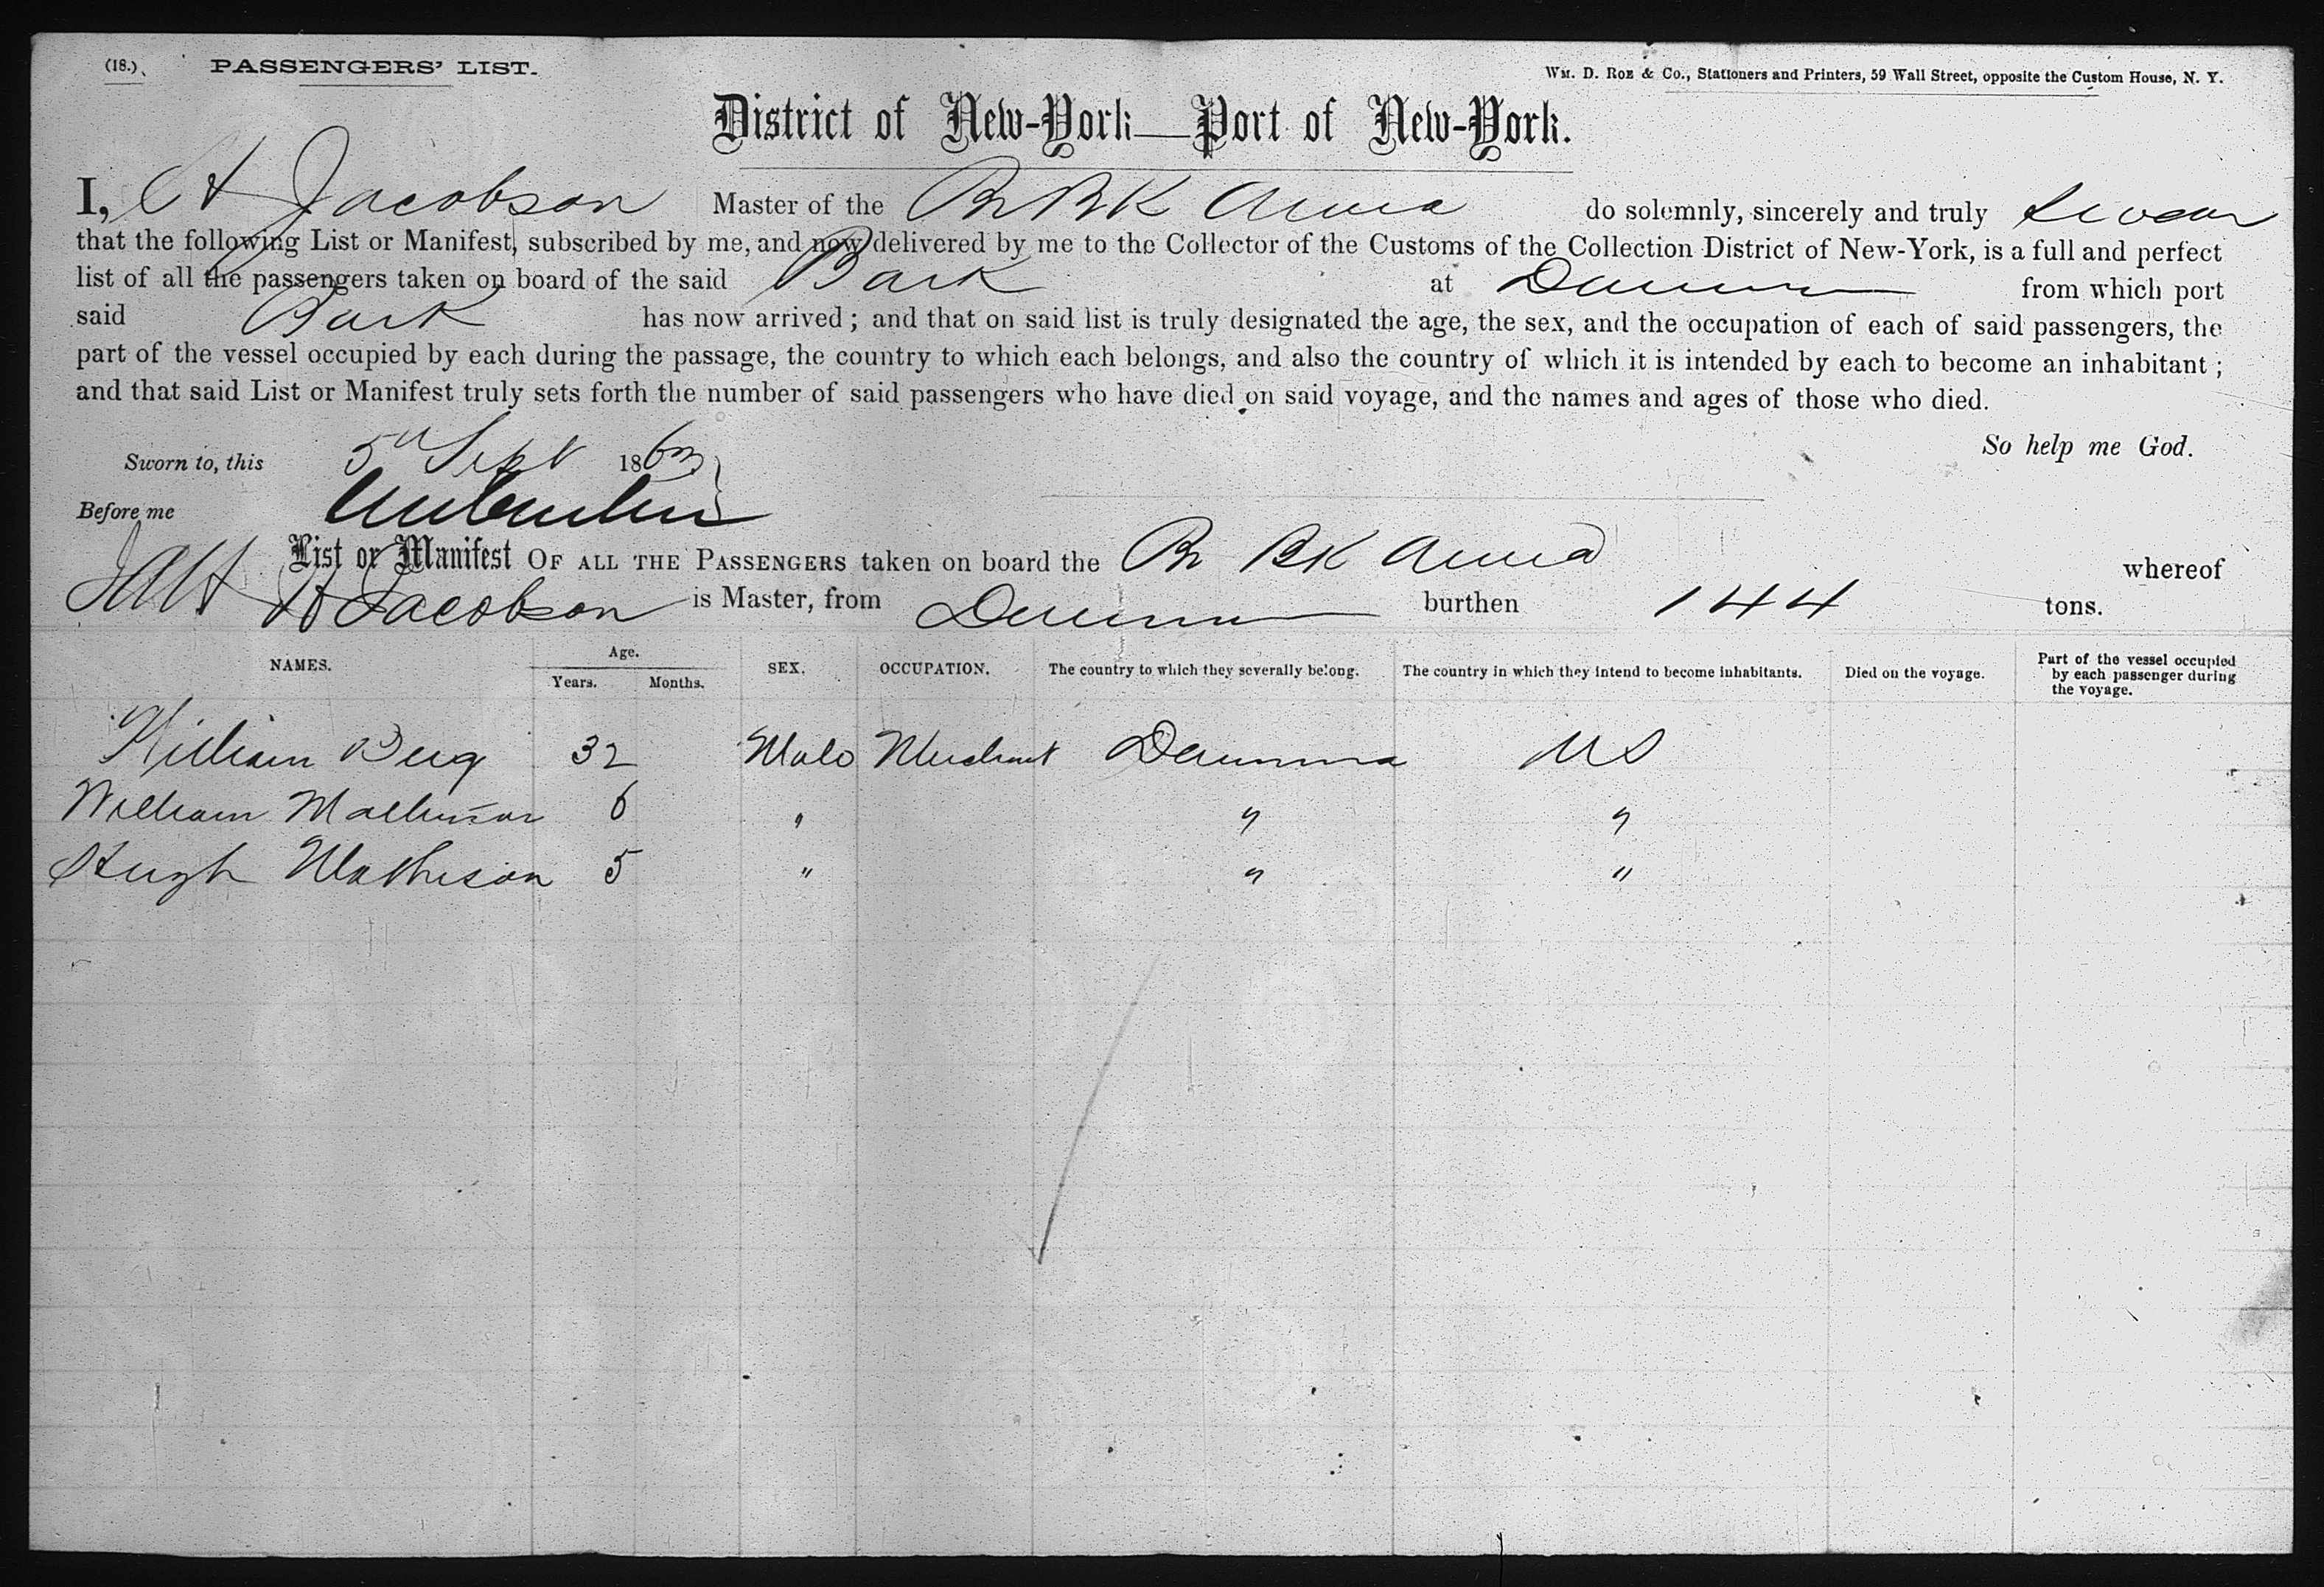 (18.) PASSENGERS' LIST. Wm. D. Roe & Co., Stationers and Printers, 59 Wall Street, opposite the Custom House, N. Y.
District of New-York—Port of New-York.
I, H Jacobson Master of the Br BK Anna do solemnly, sincerely and truly swear
that the following List or Manifest, subscribed by me, and now delivered by me to the Collector of the Customs of the Collection District of New-York, is a full and perfect
list of all the passengers taken on board of the said Bark at from which port
said Bark has now arrived; and that on said list is truly designated the age, the sex, and the occupation of each of said passengers, the
part of the vessel occupied by each during the passage, the country to which each belongs, and also the country of which it is intended by each to become an inhabitant;
and that said List or Manifest truly sets forth the number of said passengers who have died on said voyage, and the names and ages of those who died.
So help me God.
Sworn to, this 5th Sept 1863
Before me
List or Manifest OF ALL THE PASSENGERS taken on board the Br BK Anna whereof
H Jacobson is Master, from burthen 144 tons.
NAMES. Age. Years. Months. SEX. OCCUPATION. The country to which they severally belong. The country in which they intend to become inhabitants. Died on the voyage. Part of the vessel occupied by each passenger during the voyage.
William Berg 32 Male Merchant US
William Mathison 6 " " "
Hugh Matheson 5 " " "